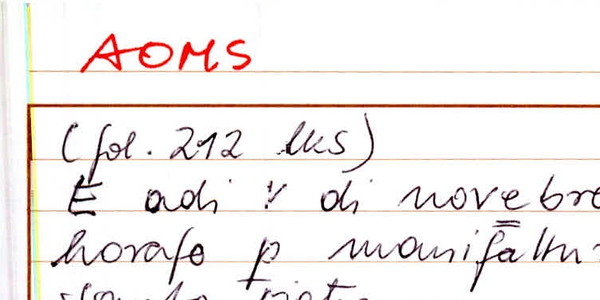 AOMS
(fol. 212 lks)
E adi di novebre
horafo p manifattu